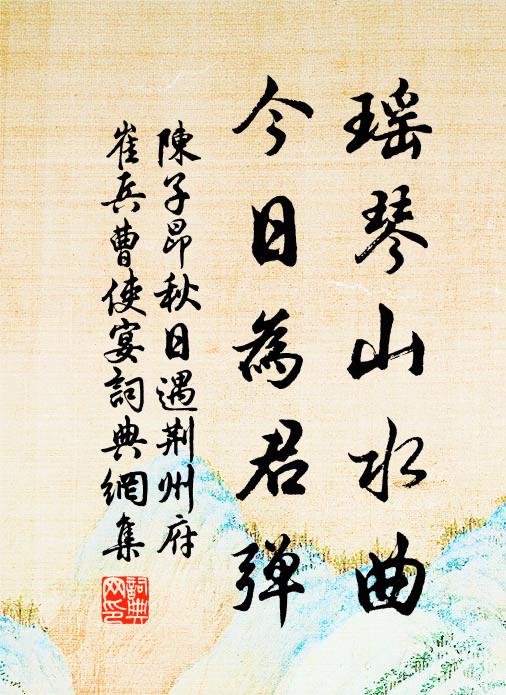 瑶琴山水曲
今日為君弹
陳子昂秋日遇荆州府
崔兵曹使宴詞典網集
詞典网印